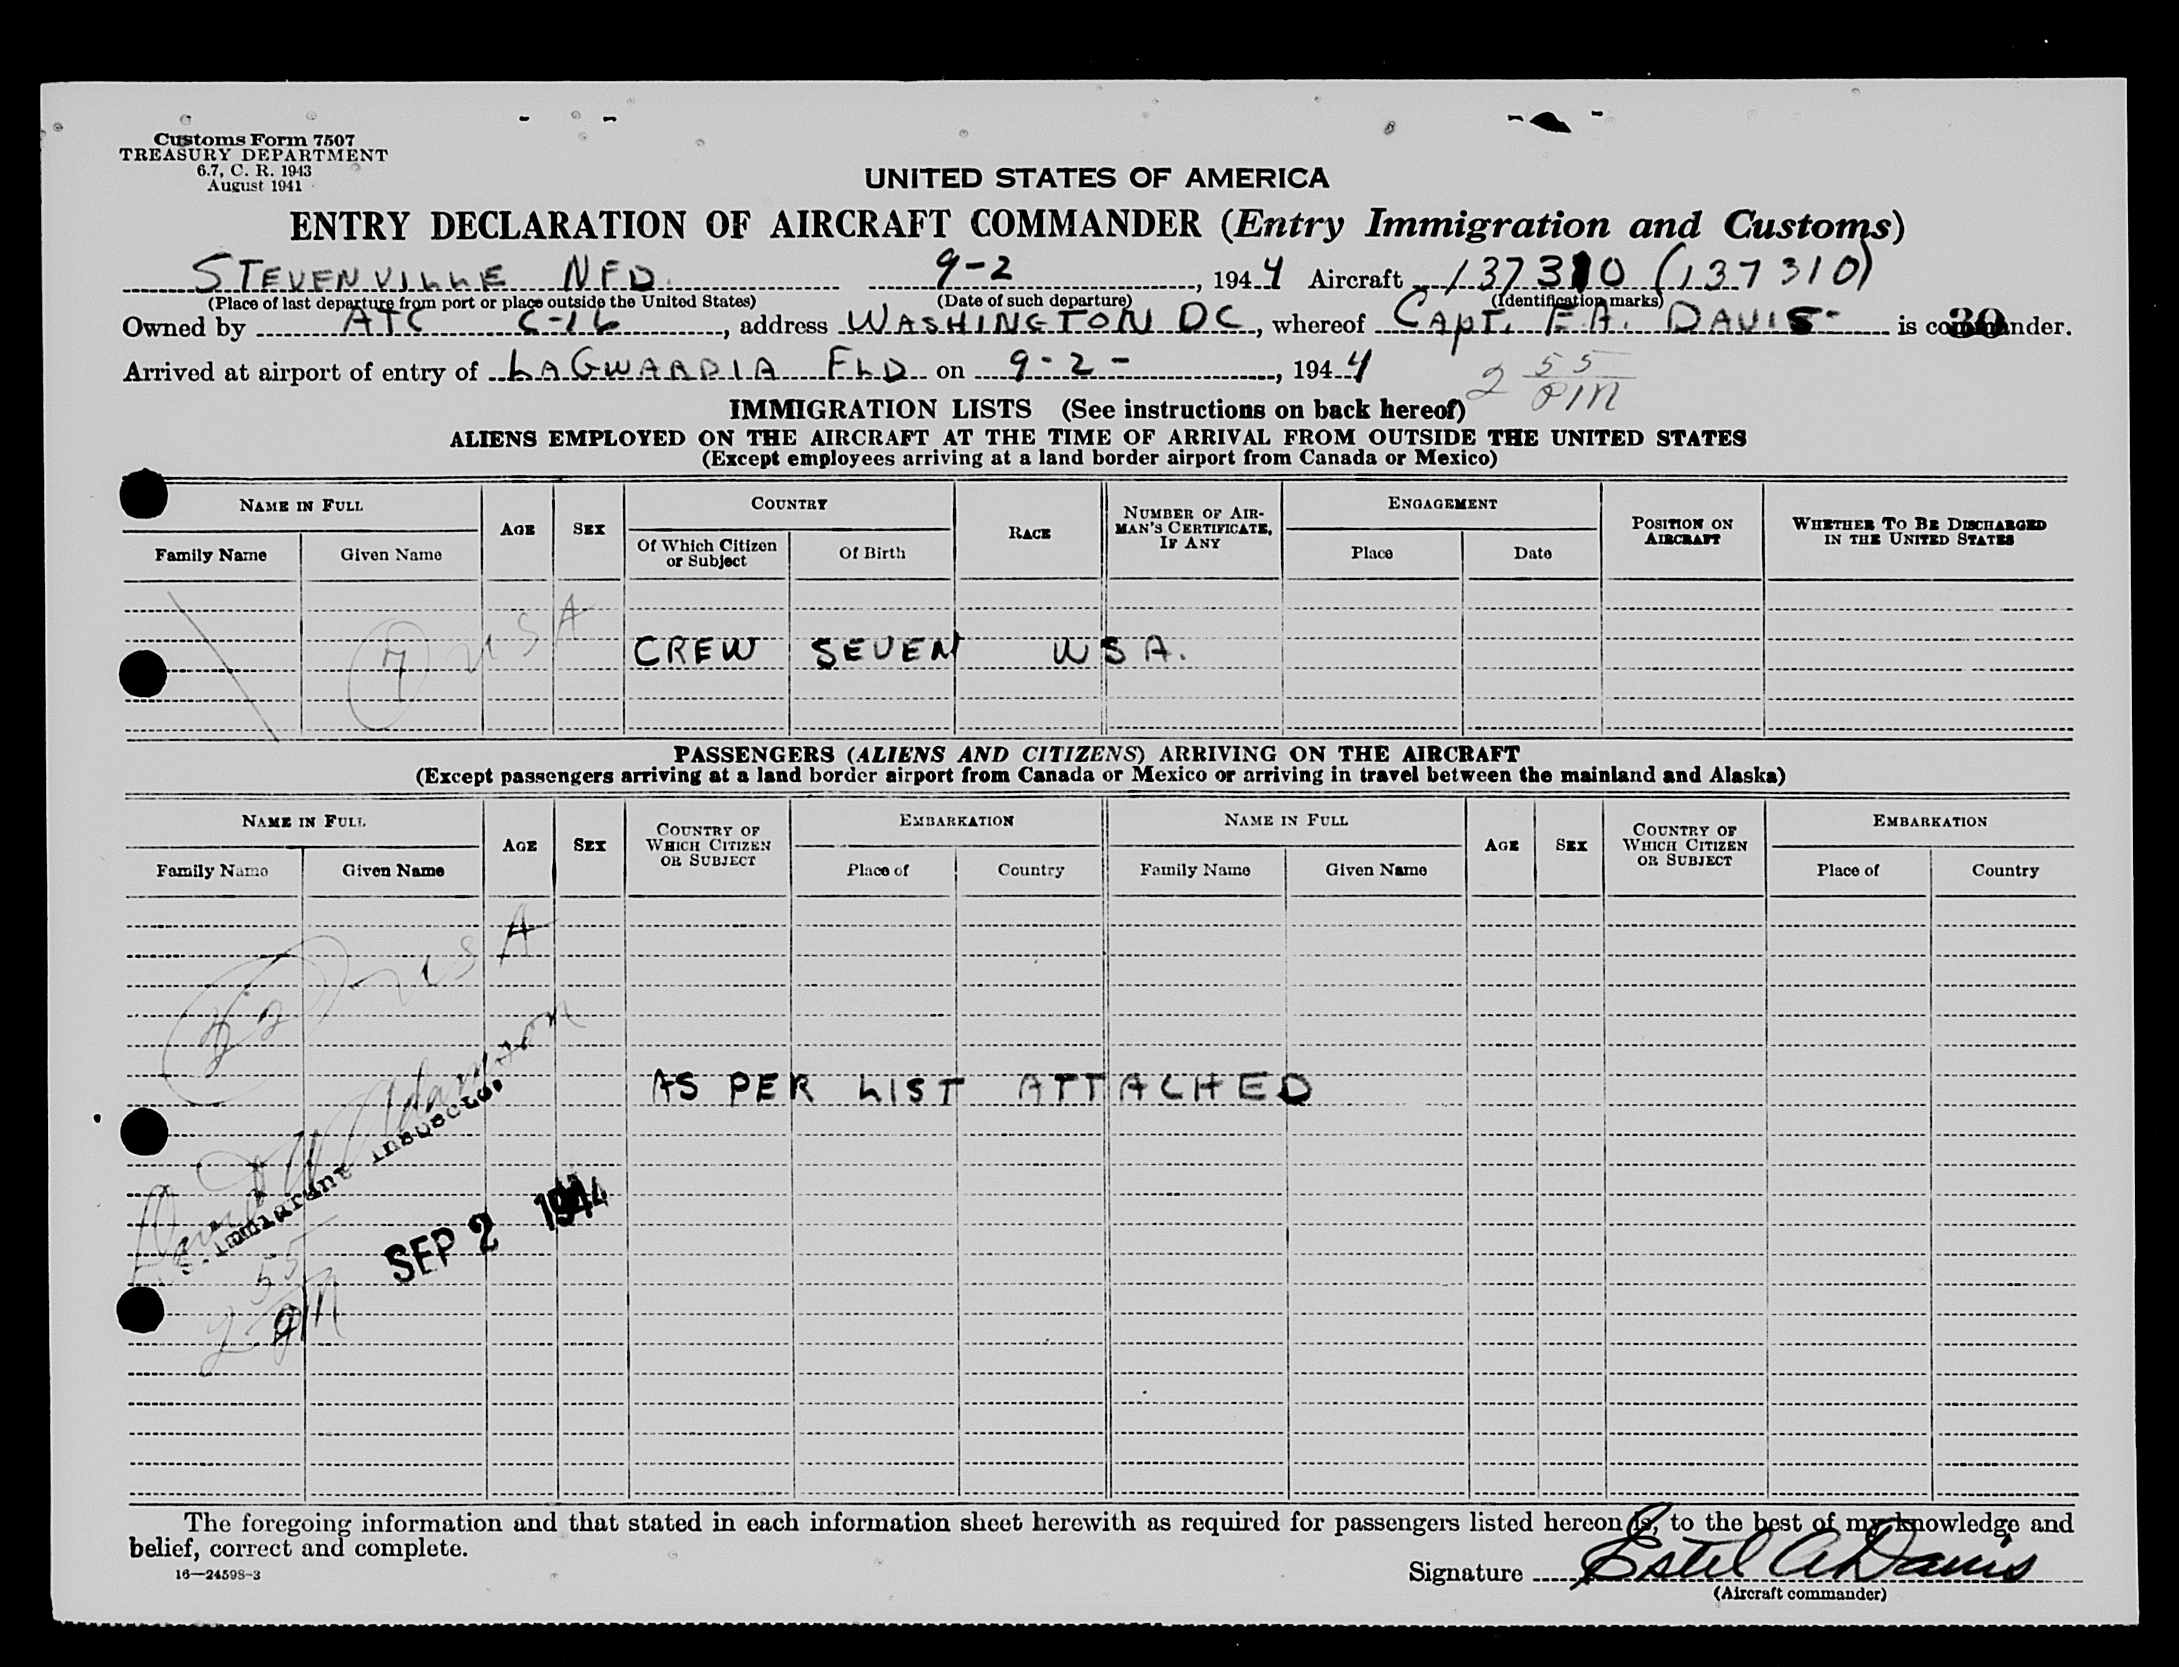 Customs Form 7507
TREASURY DEPARTMENT
6.7, C. R. 1943
August 1941
UNITED STATES OF AMERICA
ENTRY DECLARATION OF AIRCRAFT COMMANDER (Entry Immigration and Customs)
STEVENVILLE NFD. 9-2, 1944 Aircraft 137310 (137310)
(Place of last departure from port or place outside the United States) (Date of such departure) (Identification marks)
Owned by ATC C-16, address WASHINGTON DC, whereof CAPT. E.A. DAVIS is commander.
30
Arrived at airport of entry of LAGUARDIA FLD on 9-2-, 1944
2 55 PM
IMMIGRATION LISTS (See instructions on back hereof)
ALIENS EMPLOYED ON THE AIRCRAFT AT THE TIME OF ARRIVAL FROM OUTSIDE THE UNITED STATES
(Except employees arriving at a land border airport from Canada or Mexico)
NAME IN FULL AGE SEX COUNTRY RACE NUMBER OF AIRMAN'S CERTIFICATE, IF ANY ENGAGEMENT POSITION ON AIRCRAFT WHETHER TO BE DISCHARGED IN THE UNITED STATES
Family Name Given Name Of Which Citizen or Subject Of Birth Place Date
7 USA
CREW SEVEN USA.
PASSENGERS (ALIENS AND CITIZENS) ARRIVING ON THE AIRCRAFT
(Except passengers arriving at a land border airport from Canada or Mexico or arriving in travel between the mainland and Alaska)
NAME IN FULL AGE SEX COUNTRY OF WHICH CITIZEN OR SUBJECT EMBARKATION NAME IN FULL AGE SEX COUNTRY OF WHICH CITIZEN OR SUBJECT EMBARKATION
Family Name Given Name Place of Country Family Name Given Name Place of Country
USA
AS PER LIST ATTACHED
Immigrant Inspector
SEP 2 1944
2 55 PM
The foregoing information and that stated in each information sheet herewith as required for passengers listed hereon is, to the best of my knowledge and
belief, correct and complete.
16—24598-3
Signature Estel A Davis
(Aircraft commander)